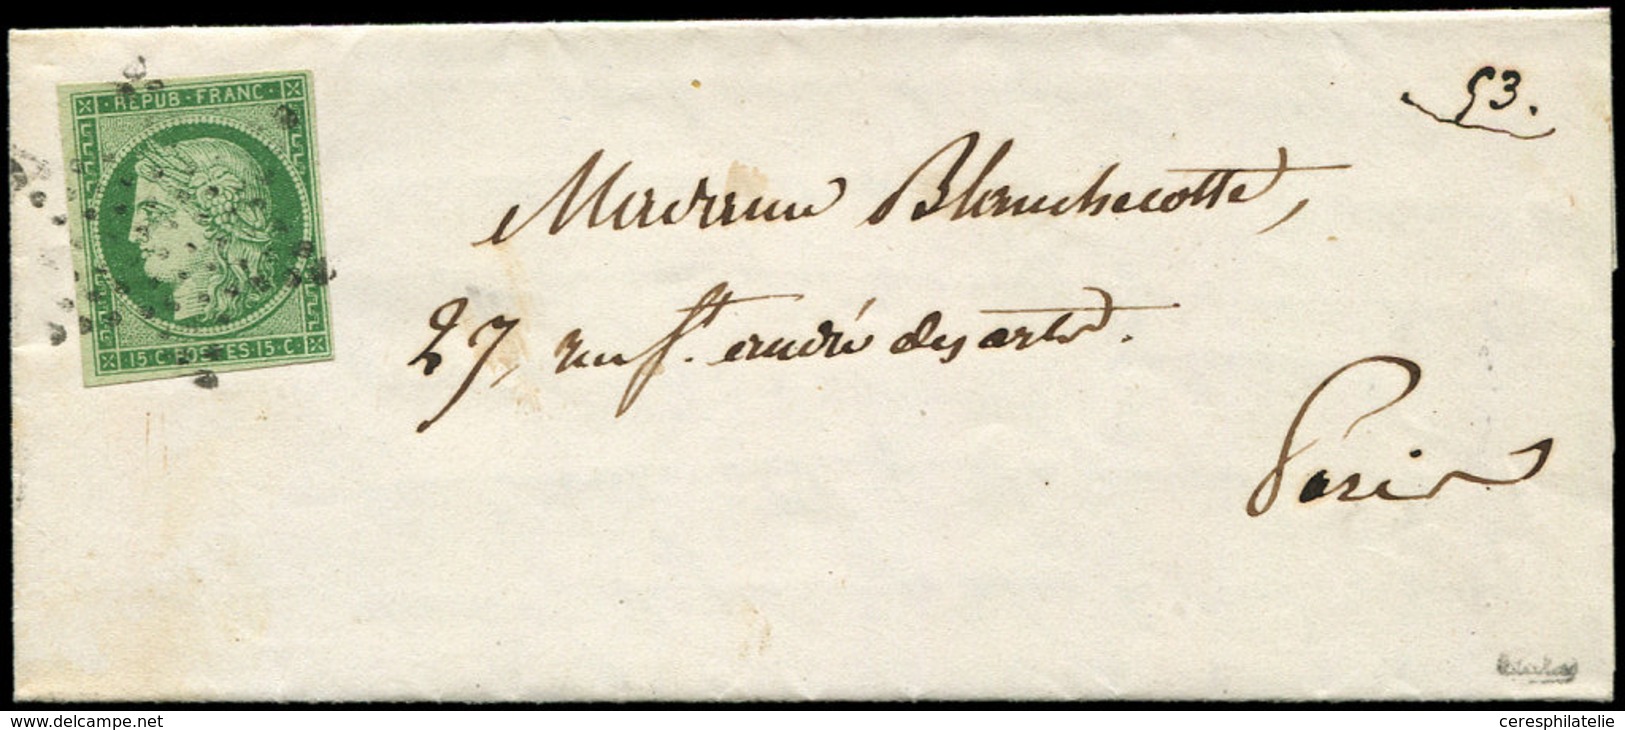 REPUB·FRANC·
15·C·POSTES·15·C·
53.
Madame Blanchecotte,
27, rue St. andré des arts.
Paris
www.delcampe.net
ceresphilatelie